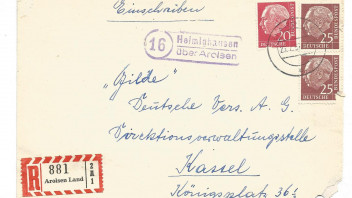 Einschreiben
20
DEUTSCHE
BUNDESPOST
25
DEUTSCHE
BUNDESPOST
25
DEUTSCHE
16
Helmighausen
über Arolsen
"Gilde"
Deutsche Vers. A. G.
Direktionsverwaltungsstelle
Kassel
Königsplatz 36½
R
881
Arolsen Land